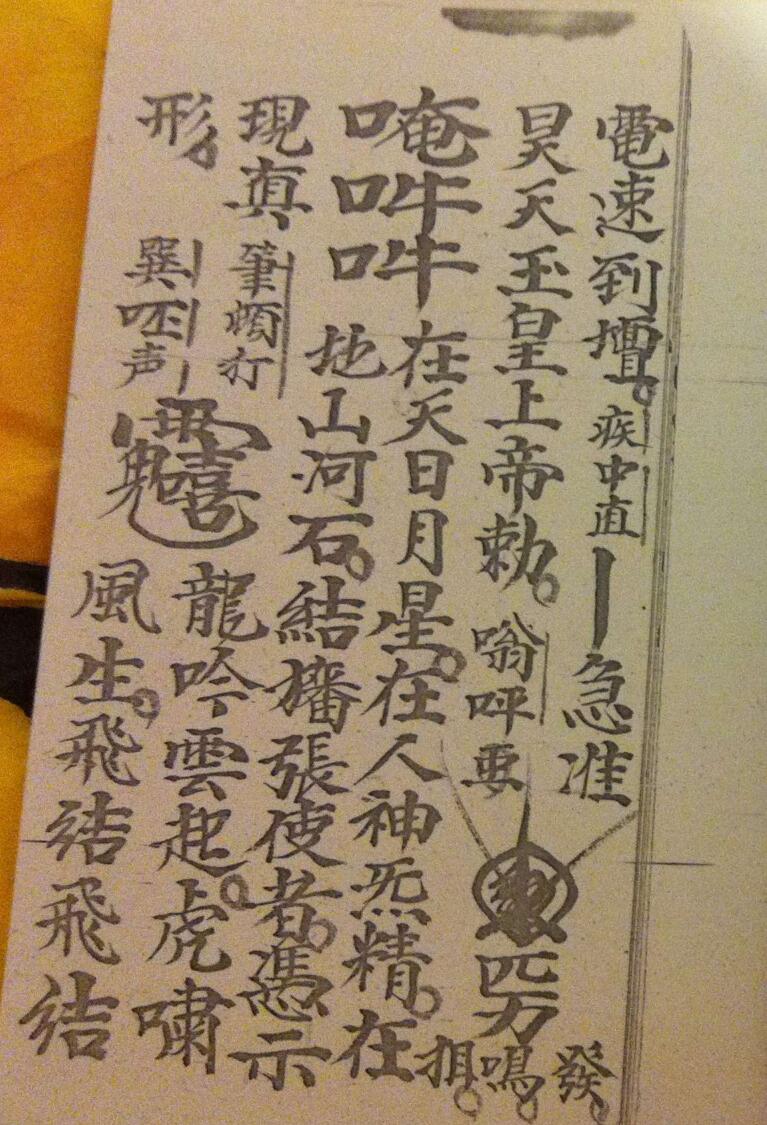 電速到壇。疾中直急准發。
昊天玉皇上帝勅。嗡呼要鳴。
唵吽吽在天日月星。在人神炁精。在
地山河石。結張使者。憑示
現真筆頓打龍吟雲起。虎嘯
形。巽呸声風生。飛結飛結